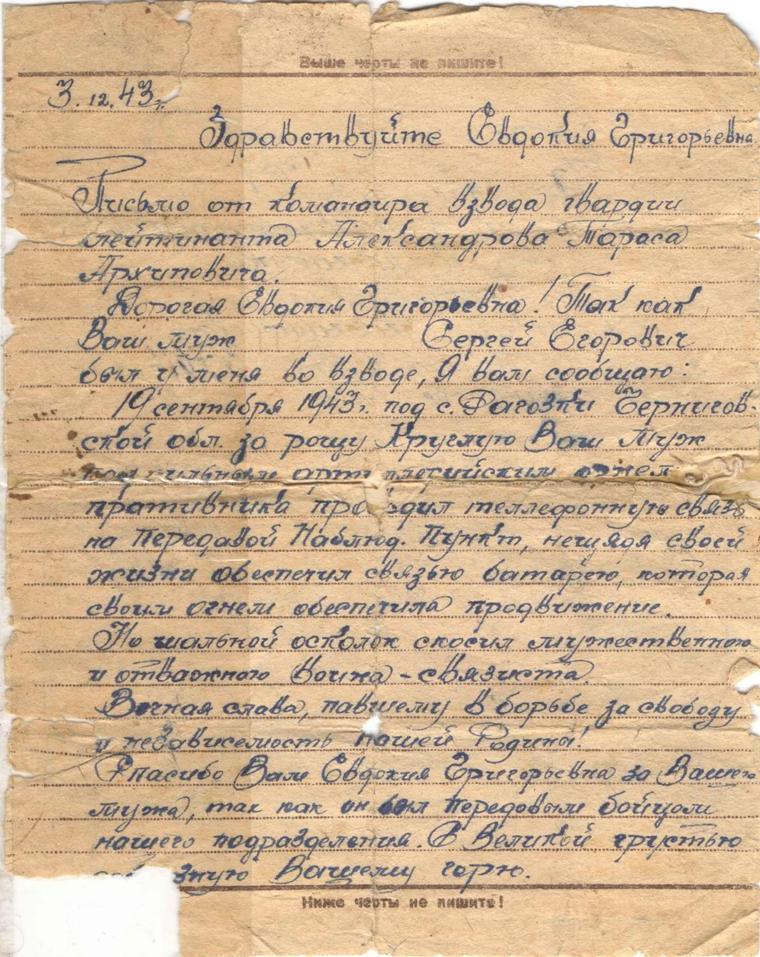 Выше черты не пишите!
3.12.43г.
Здравствуйте Евдокия Григорьевна
Письмо от командира взвода гвардии
лейтинанта Александрова Тараса
Архиповича.
Дорогая Евдокия Григорьевна! Так как
Ваш муж Сергей Егорович
был у меня во взводе, Я вам сообщаю:
19 сентября 1943г. под с. Рагозки Чернигов-
ской обл. за рощу Круглую Ваш муж
под сильным артиллесийским огнем
пративника проводил теллефонную связь
на Передавой Наблюд. Пункт, нещядя своей
жизни обеспечил связью батарею, которая
своим огнем обеспечила продвижение.
Но шальной осколок скосил мужественного
и отважного воина - связиста
Вечная слава, павшему в борьбе за свободу
и независемость нашей Родины!
Спасибо Вам Евдокия Григорьевна за Вашего
мужа, так как он был передовым бойцом
нашего подразделения. С Великой грустью
Вашему горю.
Ниже черты не пишите!